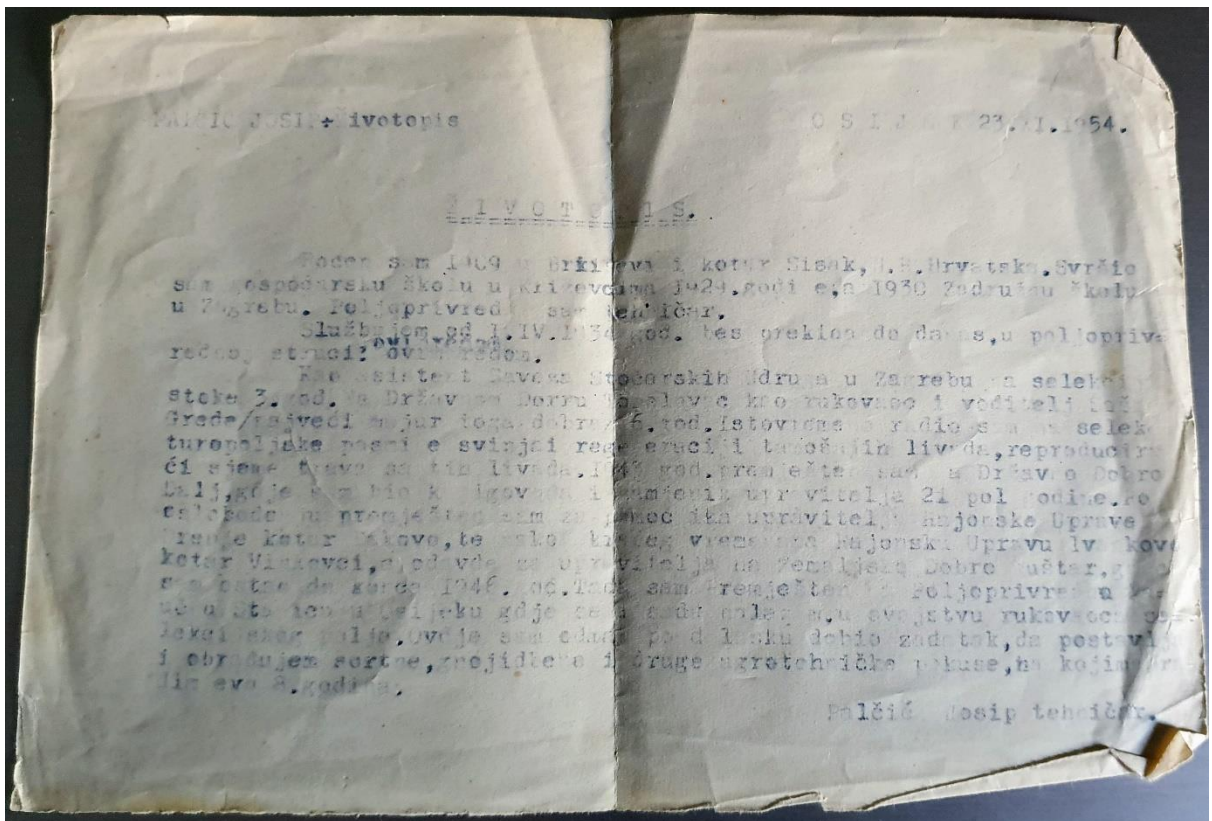 PALČIĆ JOSIP÷životopis O S I J E K 23.XI.1954.
Ž I V O T O P I S.
Rođen sam 1909 u i kotar Sisak,N.R.Hrvatska.Svršio
sam gospodarsku školu u Križevcima 1929.godine,a 1930 Zadružnu školu
u Zagrebu. Poljoprivredni sam tehničar.
Službujem od 1.IV.1934 god. bes prekida do danas,u poljopriv
rednoj struci: ovim redom.
Kao asistent Saveza Stočarskih Udruga u Zagrebu na selekciji
stoke 3.god. na Državnom Dobru kao rukovaoc i voditelj
Greda/najveći majur toga dobra/ 6.god.Istovremeno radio sam na selek
turopoljske pasmine svinja,i regeneraciji tamošnjih livada,reproducira
ći sjeme trava sa tih livada.1943 god.premješten sam na Državno Dobro
Dalj,gdje sam bio knjigovođa i zamjenik upravitelja 2i pol godine.Po
oslobođenju premješten sam za pomoćnika upravitelja Rajonske Uprave
kotar Đakovo,te nakon kratkog vremena na Rajonsku Upravu Ivankovo
kotar Vinkovci,a odavde za upravitelja na Zemaljsko Dobro
sam ostao do konca 1946. god.Tada sam premješten u Poljoprivrednu
u Osijeku gdje se i sada nalazim,u svojstvu rukovaoca
polja.Ovdje sam odmah po dolasku dobio zadatak,da postavljam
i obrađujem sortne,gnojidbene i druge agrotehničke pokuse,na kojima ra
dim evo 8.godina.
Palčić Josip tehničar.